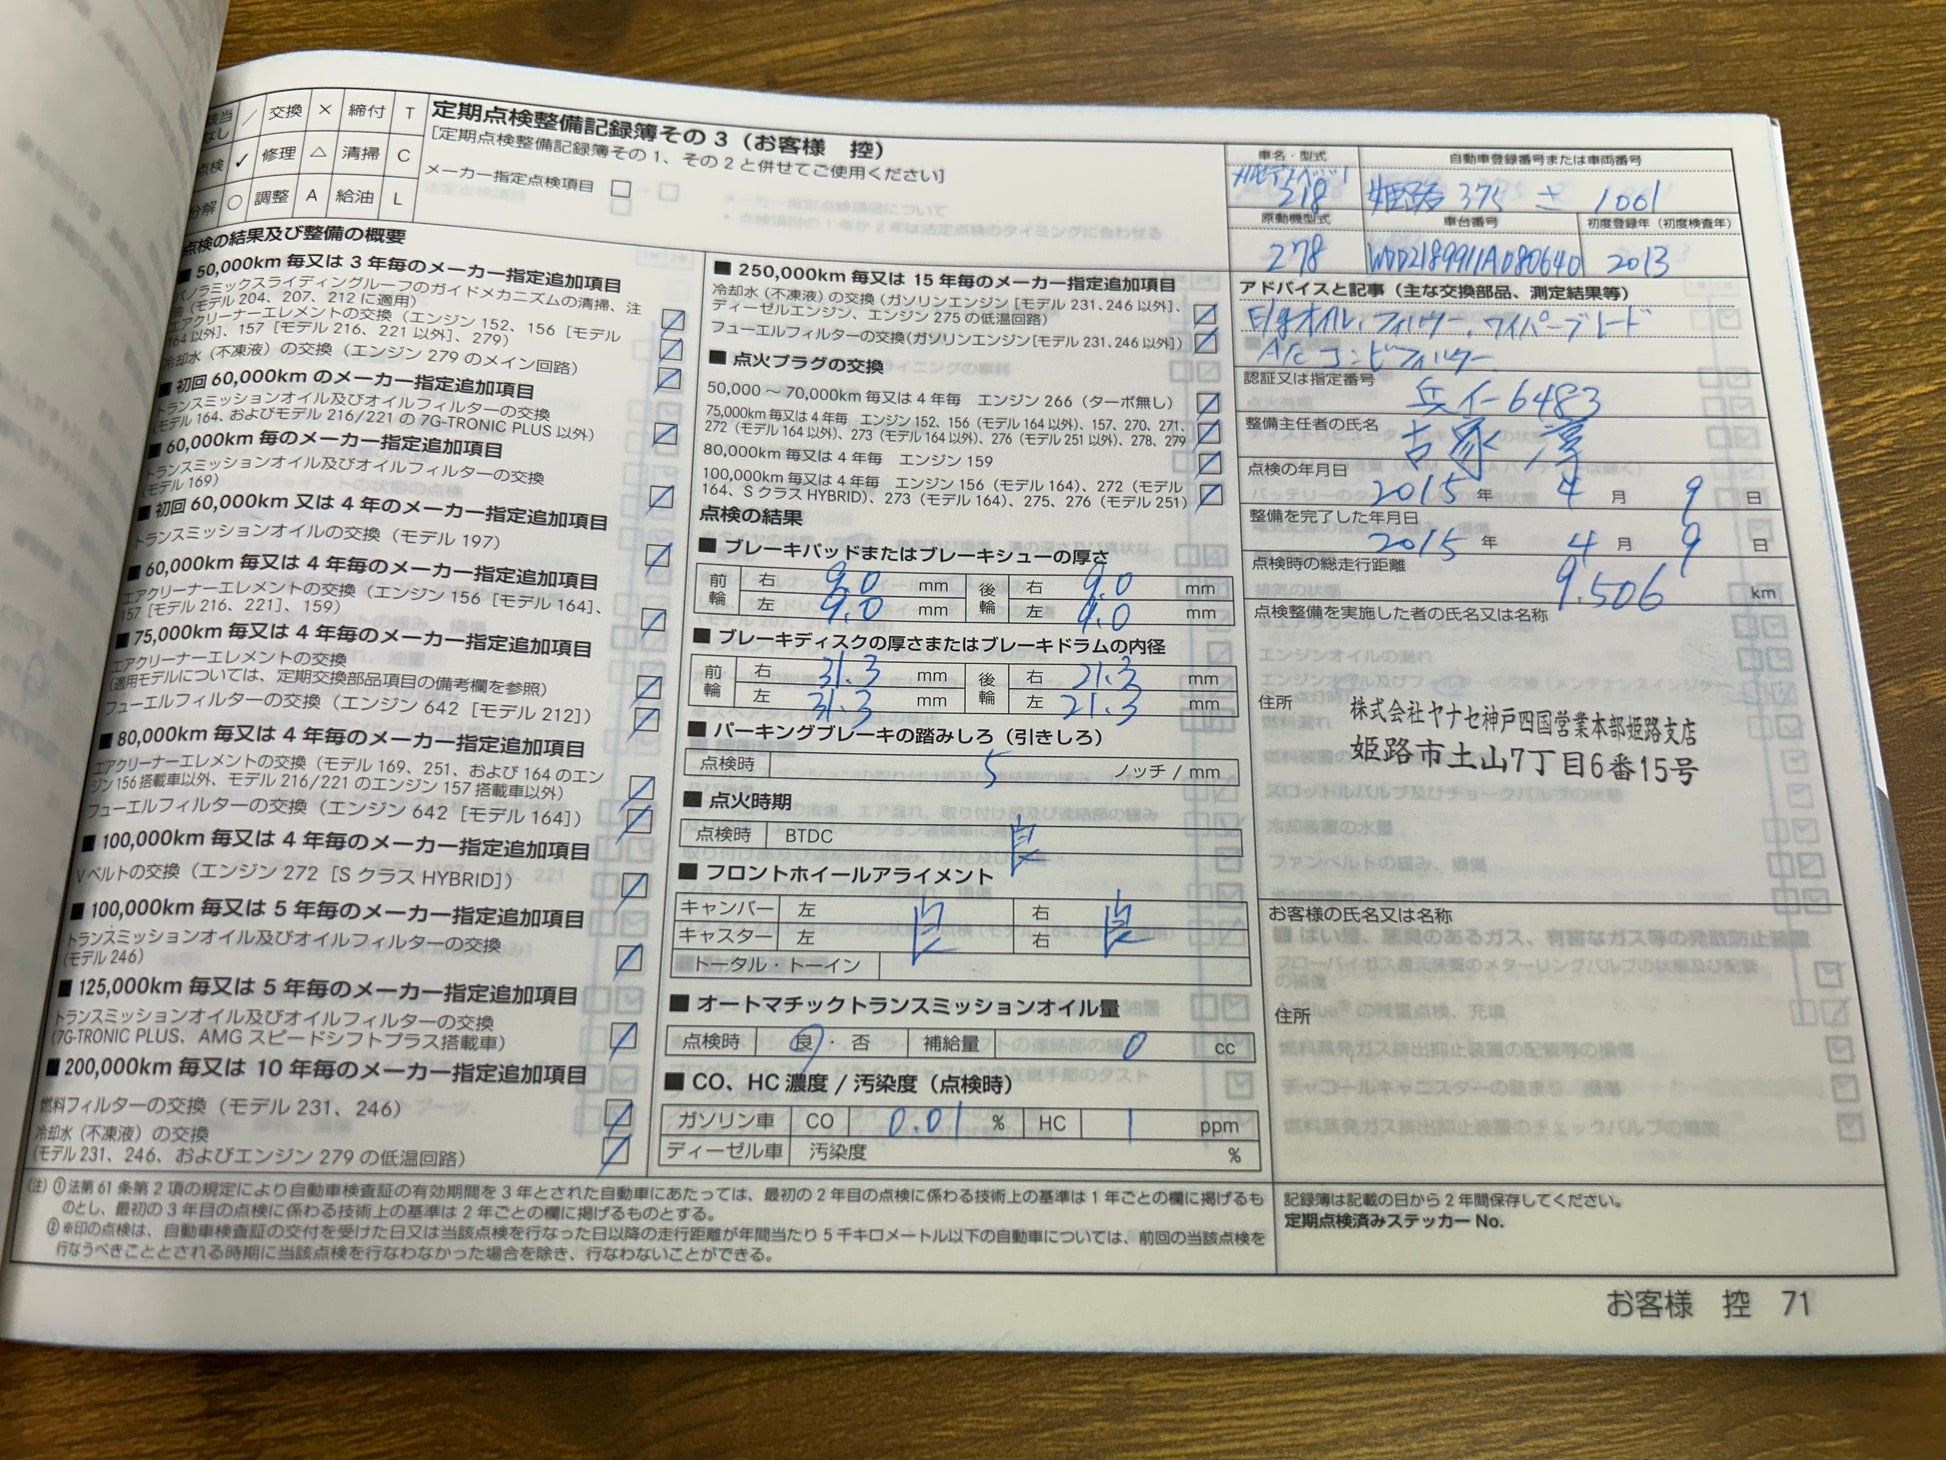 交換 × 締付 T
点検 ✓ 修理 △ 清掃 C
分解 ○ 調整 A 給油 L
定期点検整備記録簿その3（お客様 控）
[定期点検整備記録簿その1、その2と併せてご使用ください]
メーカー指定点検項目 □
点検の結果及び整備の概要
■ 50,000km 毎又は 3 年毎のメーカー指定追加項目
パノラミックスライディングルーフのガイドメカニズムの清掃、注
油（モデル 204、207、212 に適用）
エアクリーナーエレメントの交換（エンジン 152、156［モデル
164 以外］、157［モデル 216、221 以外］、279）
冷却水（不凍液）の交換（エンジン 279 のメイン回路）
■ 初回 60,000km のメーカー指定追加項目
トランスミッションオイル及びオイルフィルターの交換
（モデル 164、およびモデル 216/221 の 7G-TRONIC PLUS 以外）
■ 60,000km 毎のメーカー指定追加項目
トランスミッションオイル及びオイルフィルターの交換
（モデル 169）
■ 初回 60,000km 又は 4 年のメーカー指定追加項目
トランスミッションオイルの交換（モデル 197）
■ 60,000km 毎又は 4 年毎のメーカー指定追加項目
エアクリーナーエレメントの交換（エンジン 156［モデル 164］、
157［モデル 216、221］、159）
■ 75,000km 毎又は 4 年毎のメーカー指定追加項目
エアクリーナーエレメントの交換
（適用モデルについては、定期交換部品項目の備考欄を参照）
フューエルフィルターの交換（エンジン 642［モデル 212］）
■ 80,000km 毎又は 4 年毎のメーカー指定追加項目
エアクリーナーエレメントの交換（モデル 169、251、および 164 のエン
ジン 156 搭載車以外、モデル 216/221 のエンジン 157 搭載車以外）
フューエルフィルターの交換（エンジン 642［モデル 164］）
■ 100,000km 毎又は 4 年毎のメーカー指定追加項目
V ベルトの交換（エンジン 272［S クラス HYBRID］）
■ 100,000km 毎又は 5 年毎のメーカー指定追加項目
トランスミッションオイル及びオイルフィルターの交換
（モデル 246）
■ 125,000km 毎又は 5 年毎のメーカー指定追加項目
トランスミッションオイル及びオイルフィルターの交換
（7G-TRONIC PLUS、AMG スピードシフトプラス搭載車）
■ 200,000km 毎又は 10 年毎のメーカー指定追加項目
燃料フィルターの交換（モデル 231、246）
冷却水（不凍液）の交換
（モデル 231、246、およびエンジン 279 の低温回路）
■ 250,000km 毎又は 15 年毎のメーカー指定追加項目
冷却水（不凍液）の交換（ガソリンエンジン［モデル 231、246 以外］、
ディーゼルエンジン、エンジン 275 の低温回路）
フューエルフィルターの交換（ガソリンエンジン［モデル 231、246 以外］）
■ 点火プラグの交換
50,000 ～ 70,000km 毎又は 4 年毎 エンジン 266（ターボ無し）
75,000km 毎又は 4 年毎 エンジン 152、156（モデル 164 以外）、157、270、271、
272（モデル 164 以外）、273（モデル 164 以外）、276（モデル 251 以外）、278、279
80,000km 毎又は 4 年毎 エンジン 159
100,000km 毎又は 4 年毎 エンジン 156（モデル 164）、272（モデル
164、S クラス HYBRID）、273（モデル 164）、275、276（モデル 251）
点検の結果
■ ブレーキパッドまたはブレーキシューの厚さ
前輪 右 9.0 mm 後輪 右 9.0 mm
左 9.0 mm 左 9.0 mm
■ ブレーキディスクの厚さまたはブレーキドラムの内径
前輪 右 31.3 mm 後輪 右 21.3 mm
左 31.3 mm 左 21.3 mm
■ パーキングブレーキの踏みしろ（引きしろ）
点検時 5 ノッチ / mm
■ 点火時期
点検時 BTDC 良
■ フロントホイールアライメント
キャンバー 左 良 右 良
キャスター 左 右
トータル・トーイン
■ オートマチックトランスミッションオイル量
点検時 良・否 補給量 0 cc
■ CO、HC 濃度 / 汚染度（点検時）
ガソリン車 CO 0.01 % HC 1 ppm
ディーゼル車 汚染度 %
車名・型式 自動車登録番号または車両番号
メルセデスベンツ 218 姫路 375 さ 1001
原動機型式 車台番号 初度登録年（初度検査年）
278 WDD2189911A080640 2013
アドバイスと記事（主な交換部品、測定結果等）
E/gオイル、フィルター、ワイパーブレード
A/C コンビフィルター
認証又は指定番号 兵イ-6483
整備主任者の氏名 古家 淳
点検の年月日
2015 年 4 月 9 日
整備を完了した年月日
2015 年 4 月 9 日
点検時の総走行距離 9.506 km
点検整備を実施した者の氏名又は名称
住所
株式会社ヤナセ神戸四国営業本部姫路支店
姫路市土山7丁目6番15号
お客様の氏名又は名称
住所
（注）①法第 61 条第 2 項の規定により自動車検査証の有効期間を 3 年とされた自動車にあたっては、最初の 2 年目の点検に係わる技術上の基準は 1 年ごとの欄に掲げるも
のとし、最初の 3 年目の点検に係わる技術上の基準は 2 年ごとの欄に掲げるものとする。
②※印の点検は、自動車検査証の交付を受けた日又は当該点検を行なった日以降の走行距離が年間当たり 5 千キロメートル以下の自動車については、前回の当該点検を
行なうべきこととされる時期に当該点検を行なわなかった場合を除き、行なわないことができる。
記録簿は記載の日から 2 年間保存してください。
定期点検済みステッカー No.
お客様 控 71